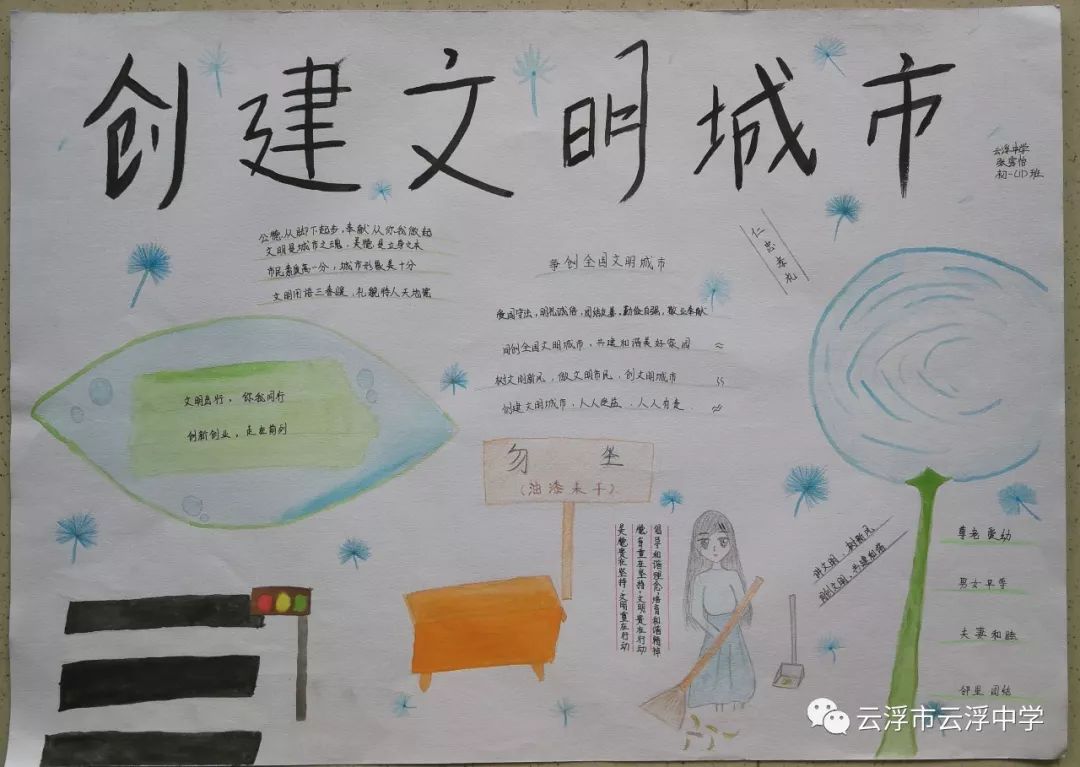 创建文明城市
云浮中学
张露怡
初一(11)班
公德从脚下起步,奉献从你我做起
文明是城市之魂,美德是立身之本
市民素质高一分,城市形象美十分
文明用语三春暖,礼貌待人天地宽
仁忠孝礼
争创全国文明城市
爱国守法,明礼诚信,团结友善,勤俭自强,敬业奉献
同创全国文明城市,共建和谐美好家园
树文明新风,做文明市民,创文明城市
创建文明城市,人人受益,人人有责
文明出行,你我同行
创新创业,走在前列
勿坐
(油漆未干)
倡导和谐理念培育和谐精神
德育重在坚持,文明贵在行动
美德贵在坚持,文明重在行动
讲文明,树新风
创文明,共建和谐
尊老爱幼
男女平等
夫妻和睦
邻里团结
云浮市云浮中学